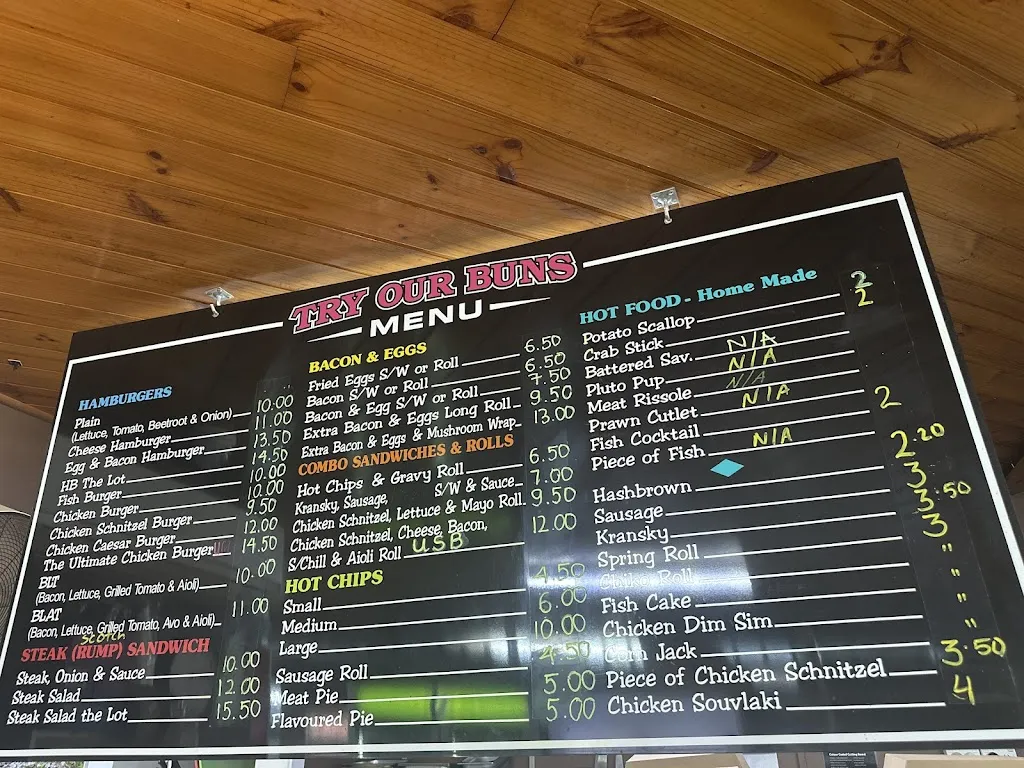 TRY OUR BUNS
MENU
HAMBURGERS
Plain 10.00
(Lettuce, Tomato, Beetroot & Onion)
Cheese Hamburger 11.00
Egg & Bacon Hamburger 13.50
HB The Lot 14.50
Fish Burger 10.00
Chicken Burger 10.00
Chicken Schnitzel Burger 9.50
Chicken Caesar Burger 12.00
The Ultimate Chicken Burger 14.50
BLT
(Bacon, Lettuce, Grilled Tomato & Aioli) 10.00
BLAT
(Bacon, Lettuce, Grilled Tomato, Avo & Aioli) 11.00
Scotch
STEAK (RUMP) SANDWICH
Steak, Onion & Sauce 10.00
Steak Salad 12.00
Steak Salad the Lot 15.50
BACON & EGGS
Fried Eggs S/W or Roll 6.50
Bacon S/W or Roll 6.50
Bacon & Egg S/W or Roll 7.50
Extra Bacon & Eggs Long Roll 9.50
Extra Bacon & Eggs & Mushroom Wrap 13.00
COMBO SANDWICHES & ROLLS
Hot Chips & Gravy Roll 6.50
Kransky, Sausage, S/W & Sauce 7.00
Chicken Schnitzel, Lettuce & Mayo Roll 9.50
Chicken Schnitzel, Cheese, Bacon,
S/Chill & Aioli Roll USB 12.00
HOT CHIPS
Small 4.50
Medium 6.00
Large 10.00
Sausage Roll 4.50
Meat Pie 5.00
Flavoured Pie 5.00
HOT FOOD - Home Made
Potato Scallop 2
Crab Stick 2
Battered Sav. N/A
Pluto Pup N/A
Meat Rissole N/A
Prawn Cutlet N/A
Fish Cocktail 2
Piece of Fish N/A
Hashbrown 2.20
Sausage 3
Kransky 3.50
Spring Roll 3
Chiko Roll "
Fish Cake "
Chicken Dim Sim "
Corn Jack "
Piece of Chicken Schnitzel 3.50
Chicken Souvlaki 4